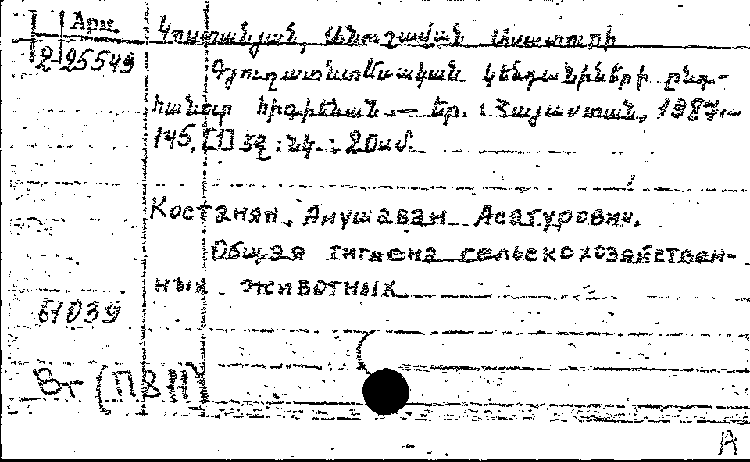 Арм
2 25549
Կոստանյան, Անուշավան Ասատուրի
Գյուղատնտեսական կենդանիների ընդ-
հանուր հիգիենան.— Եր. : Հայաստան, 1987.—
145, [1] էջ : նկ. : 20սմ.
Костанян, Анушаван Асатурович.
Общая гигиена сельскохозяйствен-
ных животных
61039
Вт (П8Н)
A